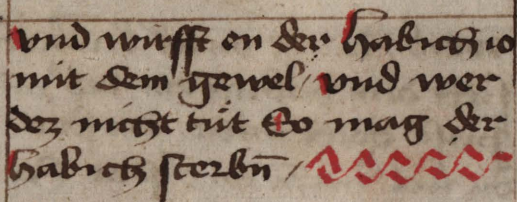 vnd wirfft en der habich io
mit dem gewel / vnd wer
dez nicht tuͤt So mag der
habich sterbn̄ /